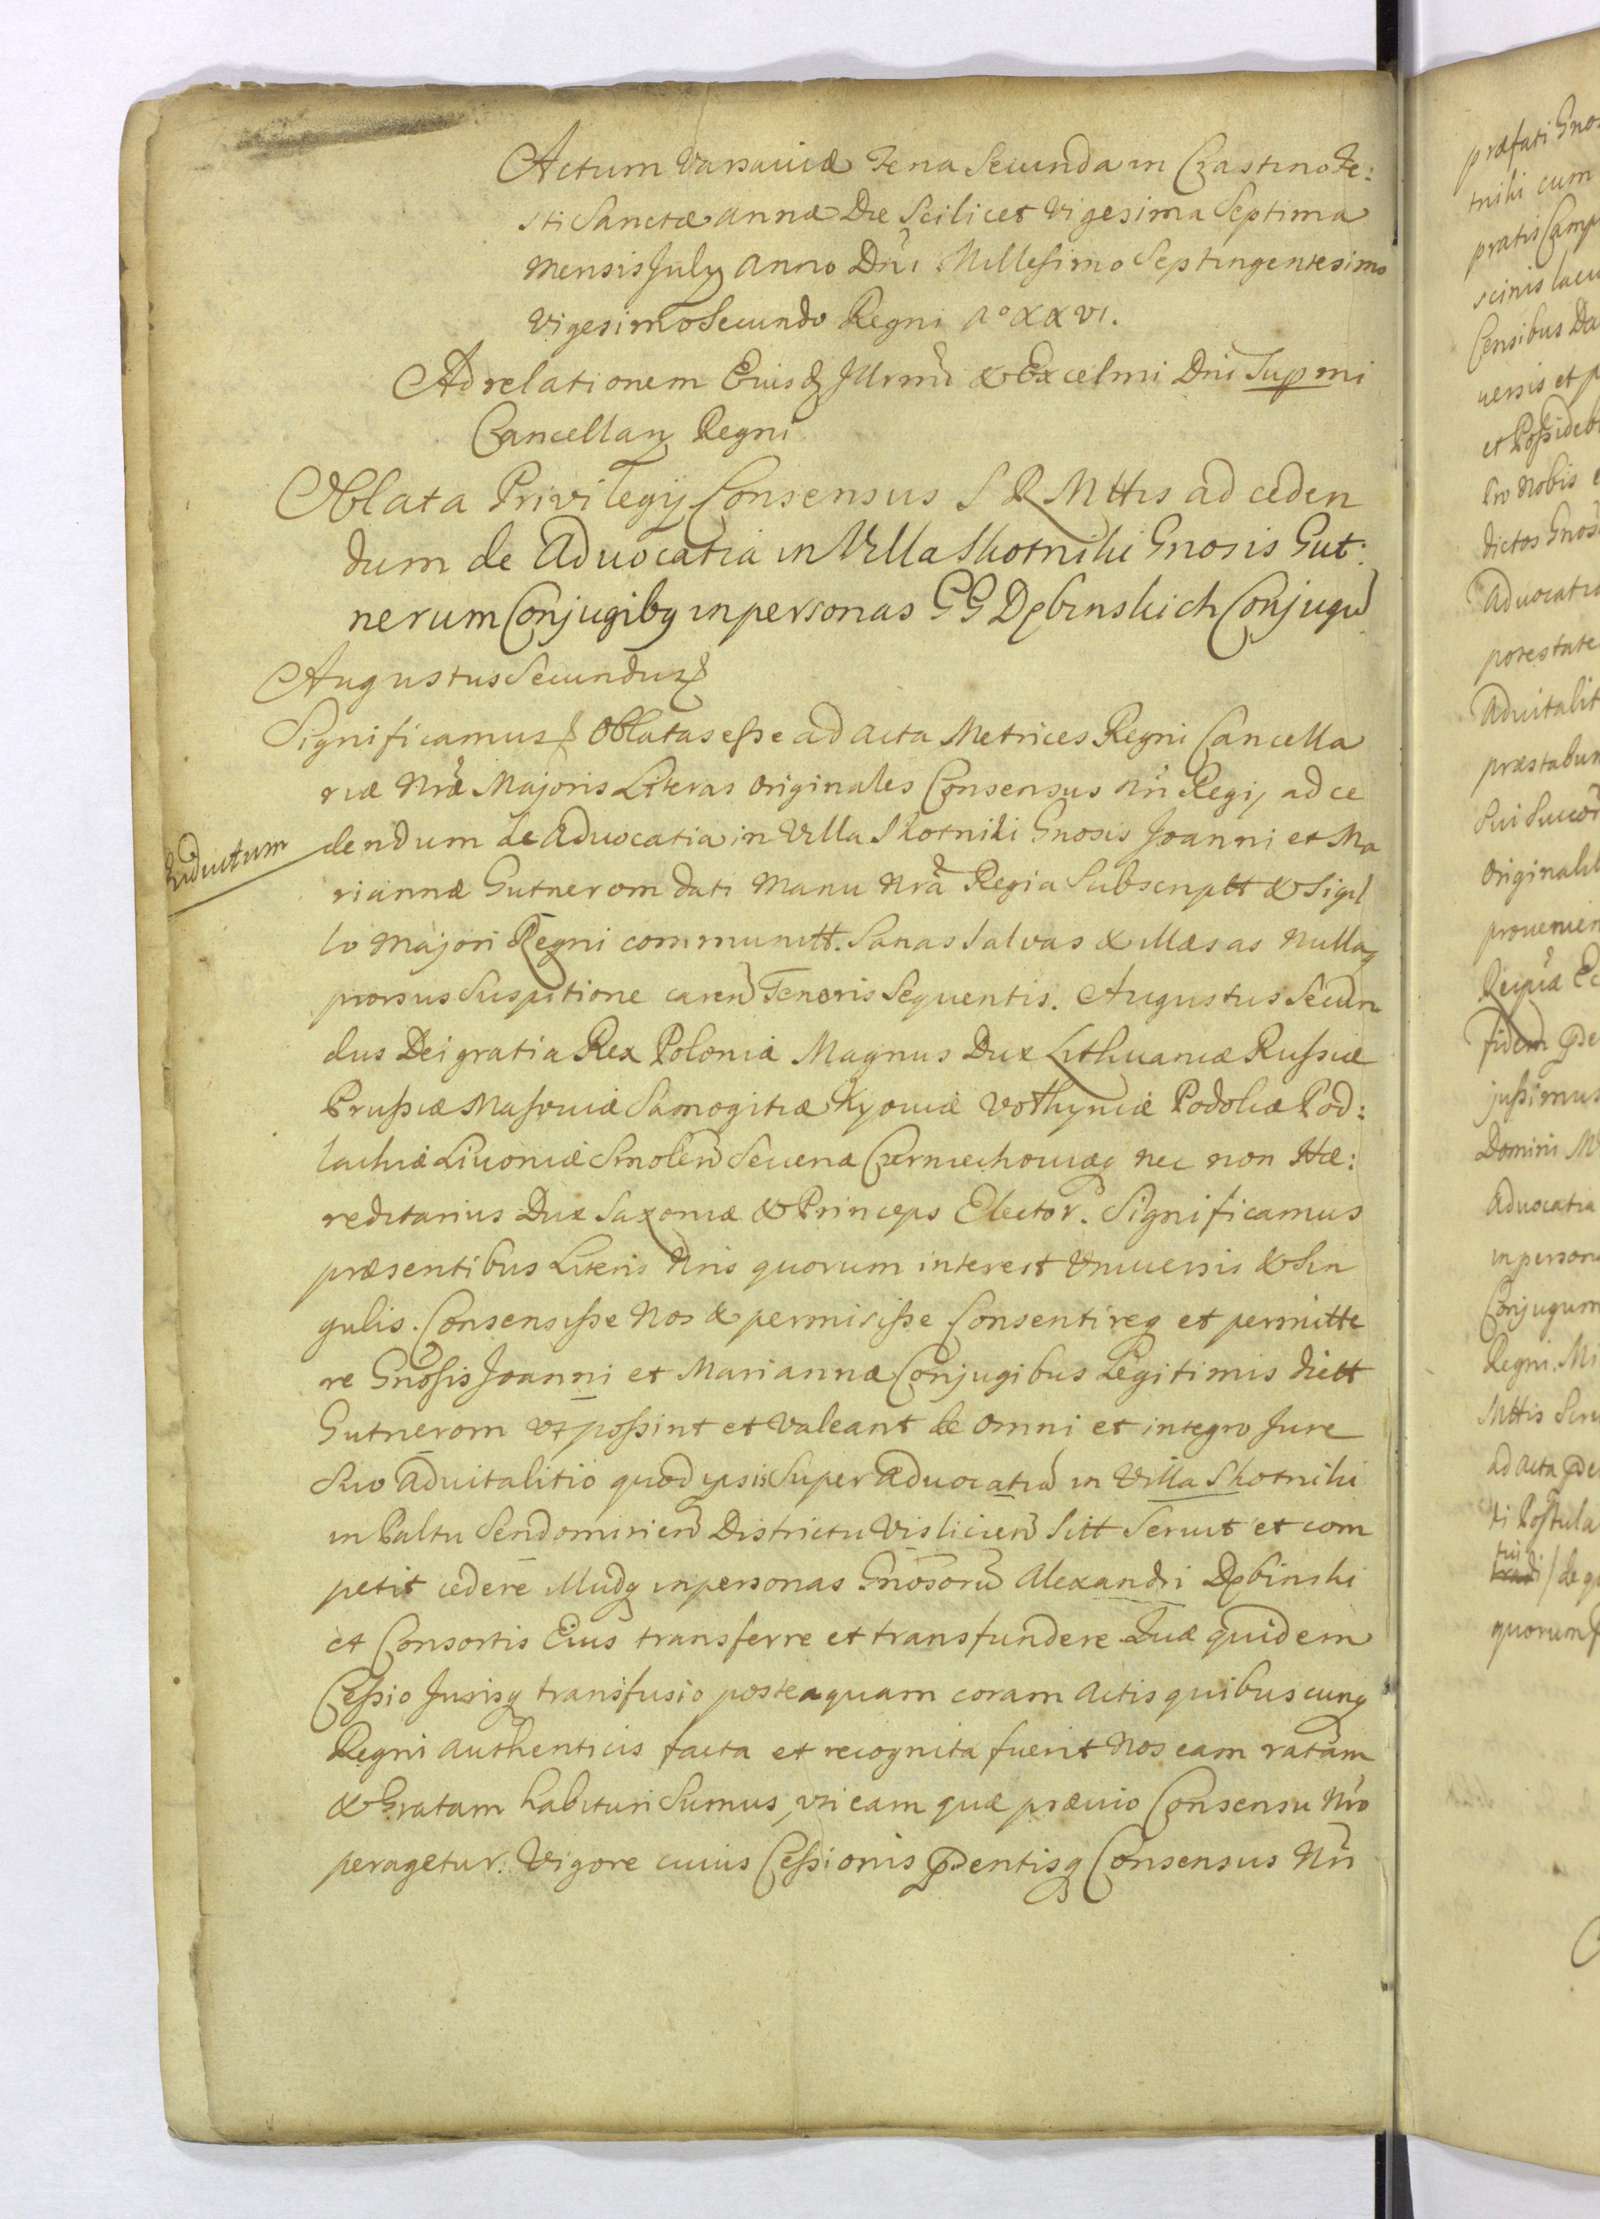 Actum Varsaviæ Feria Secunda in Crastino Fe:
sti Sanctæ Annæ Die Scilicet Vigesima Septima
mensis July Anno Dni Millesimo Septingentesimo
Vigesimo Secundo Regni Aº XXVI.
Ad relationem Eiusdq Illrmi & Excelmi Dni Supmi
Cancellary Regni
Oblata Privilegij Consensus S R Mttis ad ceden
dum de Advocatia in Villa Skotniki Gnosis Gut:
nerum Conjugibq in personas GG Dębinskich Conjugu
Augustus Secundus
Significamus Oblatas esse ad Acta Metrices Regni Cancella
riæ Nræ Majoris Literas Originales Consensus Nri Regij ad ce
dendum de Advocatia in Villa Skotniki Gnosis Joanni et Ma
Inductum
riannæ Gutnerom dati Manu Nra Regia Subscriptt & Sigil
lo Majori Regni communitt. Sanas Salvas & illæsas Nullaq
prorsus Suspitione caren Tenoris Sequentis. Augustus Secun
dus Dei gratia Rex Poloniæ Magnus Dux Lithuaniæ Russiæ
Prussiæ Masoviæ Samogitiæ Kyoviæ Volhyniæ Podoliæ Pod:
lachiæ Livoniæ Smolen Severiæ Czerniechoviæq nec non Hæ:
reditarius Dux Saxoniæ & Princeps Elector. Significamus
præsentibus Literis Nris quorum interest Universis & Sin
gulis. Consensisse Nos & permisisse Consentireq et permitte
re Gnosis Joanni et Mariannæ Conjugibus Legitimis dictt
Gutnerom Vt possint et Valeant de omni et integro Jure
Suo Advitalitio quod ipsis Super Advocatia in Villa Skotniki
in Paltu Sendomirien Districtu Vislicien Sitt Servit et com
petit cedere Illudq in personas Gnosoru Alexandri Dębinski
et Consortis Eius transferre et transfundere. Quæ quidem
Cessio Jurisq transfusio posteaquam coram Actis quibuscunq
Regni Authenticis facta et recognita fuerit Nos eam ratam
& Gratam habituri Sumus, vti eam quæ prævio Consensu Nro
peragetur. Vigore cuius Cessionis pdentisq Consensus Nri
præfati Gnos
tniki cum
pratis Camp
scinis lacu
Censibus Da
versis et p
et Possideb
Pro Nobis e
dictos Gnos
Advocatia
potestate
Advitalit
præstabun
Sui Succor
Originalib
provenien
Reipub Ec
fidem pde
jussimus
Domini M
Advocatia
in person
Conjugum
Regni. Mi
Mttis Secr
ad Acta pde
ti Postula
tui
/ de q
quorum f